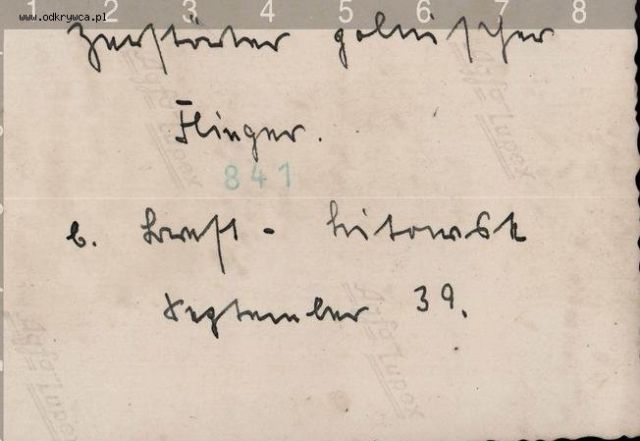 1 2 3 4 5 6 7 8
www.odkrywca.pl
Zerstörter polnischer
Flieger.
841
b. Brest-Litowsk
September 39.
Agfa Lupex
Agfa Lupex
Agfa Lupex
Agfa Lupex
Agfa Lupex